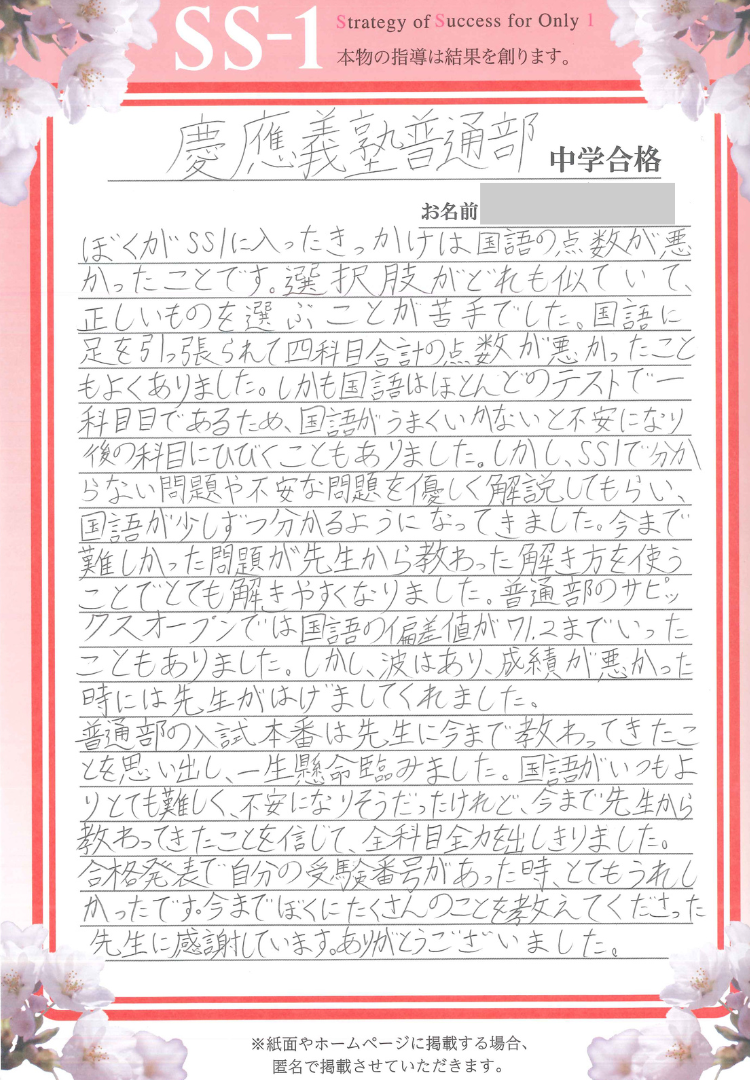 SS-1 Strategy of Success for Only 1
本物の指導は結果を創ります。
慶應義塾普通部 中学合格
お名前
ぼくがSS1に入ったきっかけは国語の点数が悪
かったことです。選択肢がどれも似ていて、
正しいものを選ぶことが苦手でした。国語に
足を引っ張られて四科目合計の点数が悪かったこと
もよくありました。しかも国語はほとんどのテストで一
科目目であるため、国語がうまくいかないと不安になり
後の科目にひびくこともありました。しかし、SS1で分か
らない問題や不安な問題を優しく解説してもらい、
国語が少しずつ分かるようになってきました。今まで
難しかった問題が先生から教わった解き方を使う
ことでとても解きやすくなりました。普通部のサピッ
クスオープンでは国語の偏差値が71.2までいった
こともありました。しかし、波はあり、成績が悪かった
時には先生がはげましてくれました。
普通部の入試本番は先生に今まで教わってきたこ
とを思い出し、一生懸命臨みました。国語がいつもよ
りとても難しく、不安になりそうだったけれど、今まで先生から
教わってきたことを信じて、全科目全力を出しきりました。
合格発表で自分の受験番号があった時、とてもうれし
かったです。今までぼくにたくさんのことを教えてくださった
先生に感謝しています。ありがとうございました。
※紙面やホームページに掲載する場合、
匿名で掲載させていただきます。